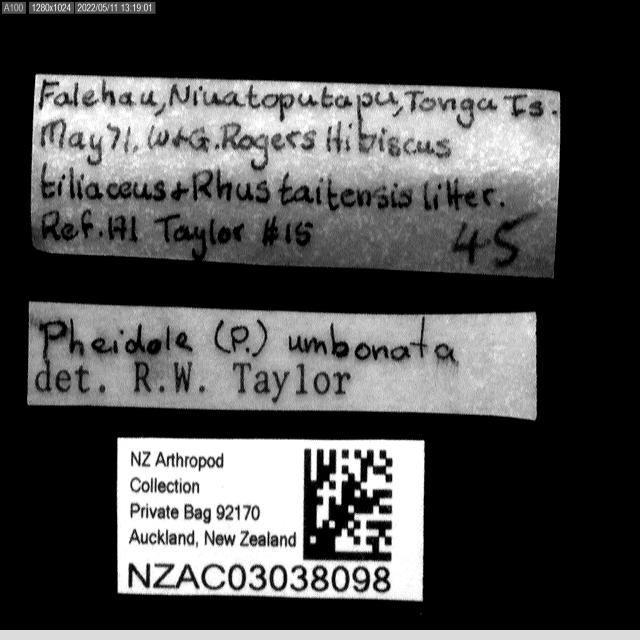 A100 1280x1024 2022/05/11 13:19:01
Falehau, Niuatoputapu, Tonga Is.
May 71. W+G. Rogers Hibiscus
tiliaceus + Rhus taitensis litter.
Ref. 171 Taylor #15
45
Pheidole (P.) umbonata
det. R.W. Taylor
NZ Arthropod
Collection
Private Bag 92170
Auckland, New Zealand
NZAC03038098